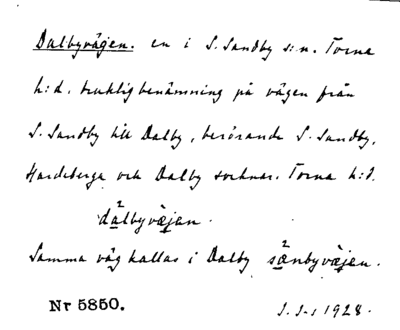 Dalbyvägen. en i S. Sandby s:n. Torna
h:d. bruklig benämning på vägen från
S. Sandby till Dalby, berörande S. Sandby,
Hardeberga och Dalby socknar. Torna h:d.
dalbyvæjan.
Samma väg kallas i Dalby sanbyvæjen.
Nr 5850.
1928.